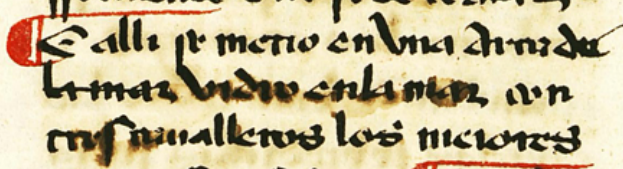 E alli se metio en vna arca de
la mar vidro en la mar con
tres caualleros los meiores